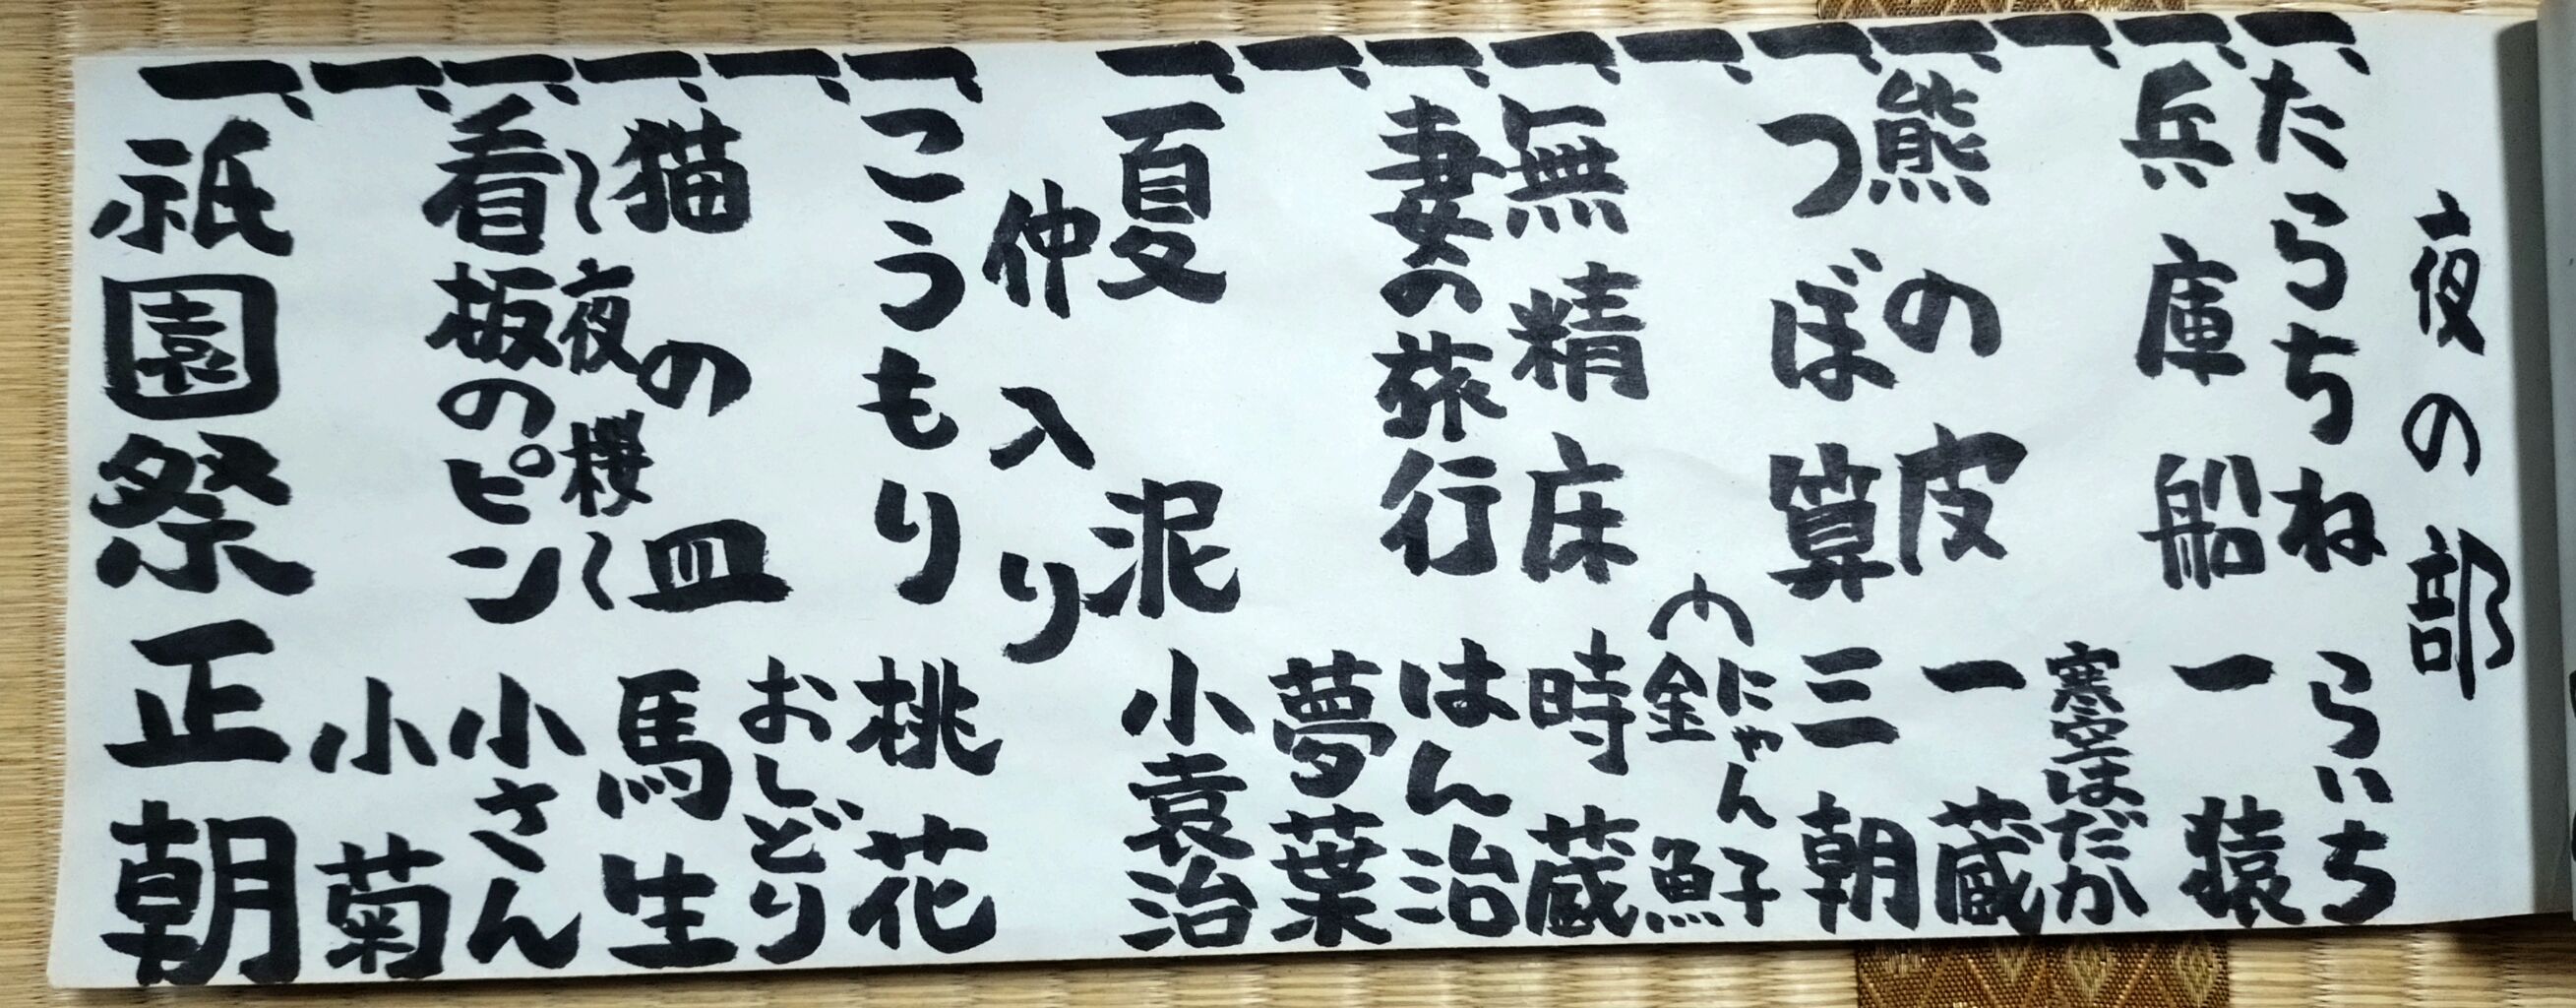 夜の部
一、たらちね らいち
一、兵庫船 一猿
一、寒空はだか
一、熊の皮 一蔵
一、つぼ算 三朝
一、にゃん子 金魚
一、無精床 時蔵
一、妻の旅行 はん治
一、夢葉
一、夏泥 小袁治
仲入り
一、こうもり 桃花
一、おしどり
一、猫の皿 馬生
〜夜桜〜
一、看板のピン 小さん
一、小菊
一、祇園祭 正朝